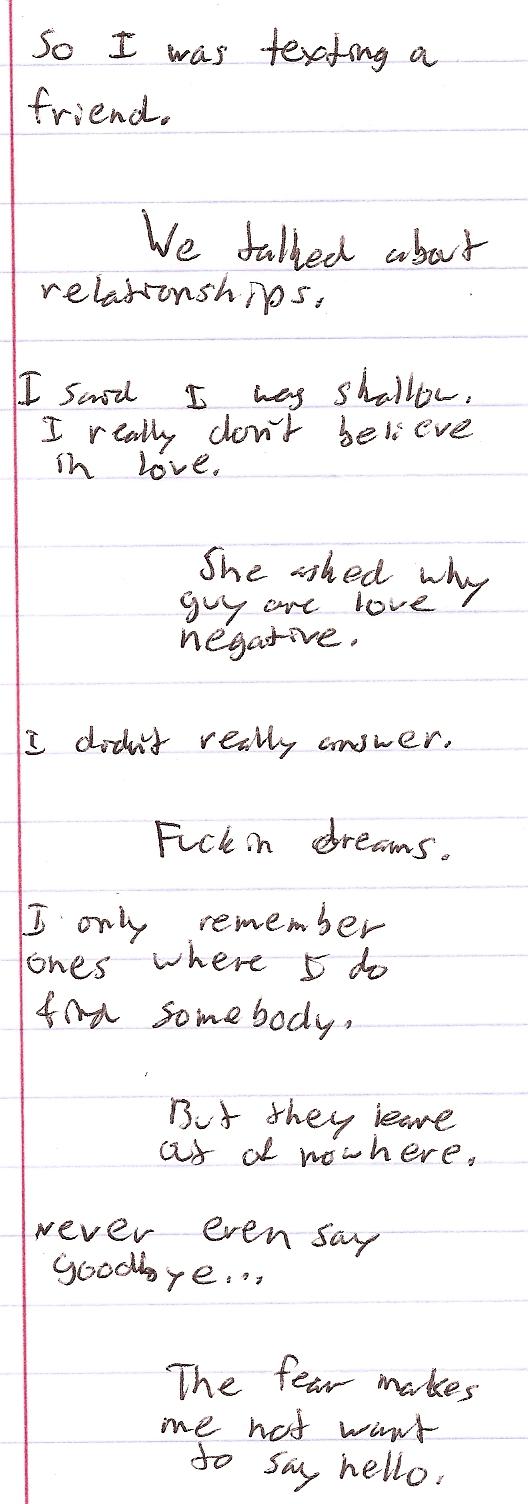 So I was texting a
friend.
We talked about
relationships.
I said I was shallow.
I really don't believe
in love.
She asked why
guy are love
negative.
I didn't really answer.
Fuckin dreams.
I only remember
ones where I do
find somebody.
But they leave
out of nowhere.
Never even say
goodbye...
The fear makes
me not want
to say hello.